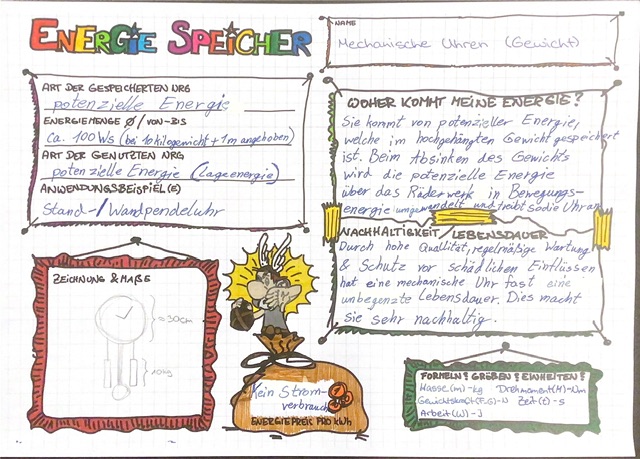 ENERGIE SPEICHER
NAME
Mechanische Uhren (Gewicht)
ART DER GESPEICHERTEN NRG
potenzielle Energie
ENERGIEMENGE Ø/VON-BIS
ca. 100 Ws (bei 10 kilogewicht + 1m angehoben)
ART DER GENUTZTEN NRG
potenzielle Energie (Lageenergie)
ANWENDUNGSBEISPIEL(E)
Stand-/Wandpendeluhr
WOHER KOMMT MEINE ENERGIE?
Sie kommt von potenzieller Energie,
welche im hochgehängten Gewicht gespeichert
ist. Beim Absinken des Gewichts
wird die potenzielle Energie
über das Räderwerk in Bewegungs-
energie umgewandelt und treibt so die Uhr an
NACHHALTIGKEIT / LEBENSDAUER
Durch hohe Quallität, regelmäßige Wartung
& Schutz vor schädlichen Einflüssen
hat eine mechanische Uhr fast eine
unbegenzte Lebensdauer. Dies macht
sie sehr nachhaltig.
ZEICHNUNG & MAßE
≈30cm
10kg
Kein Strom-
verbrauch
ENERGIEPREIS PRO kWh
FORMELN? GRÖßEN? EINHEITEN!
Masse(m)-kg Drehmoment(M)-Nm
Gewichtskraft(F,G)-N Zeit(t)-s
Arbeit(W)-J